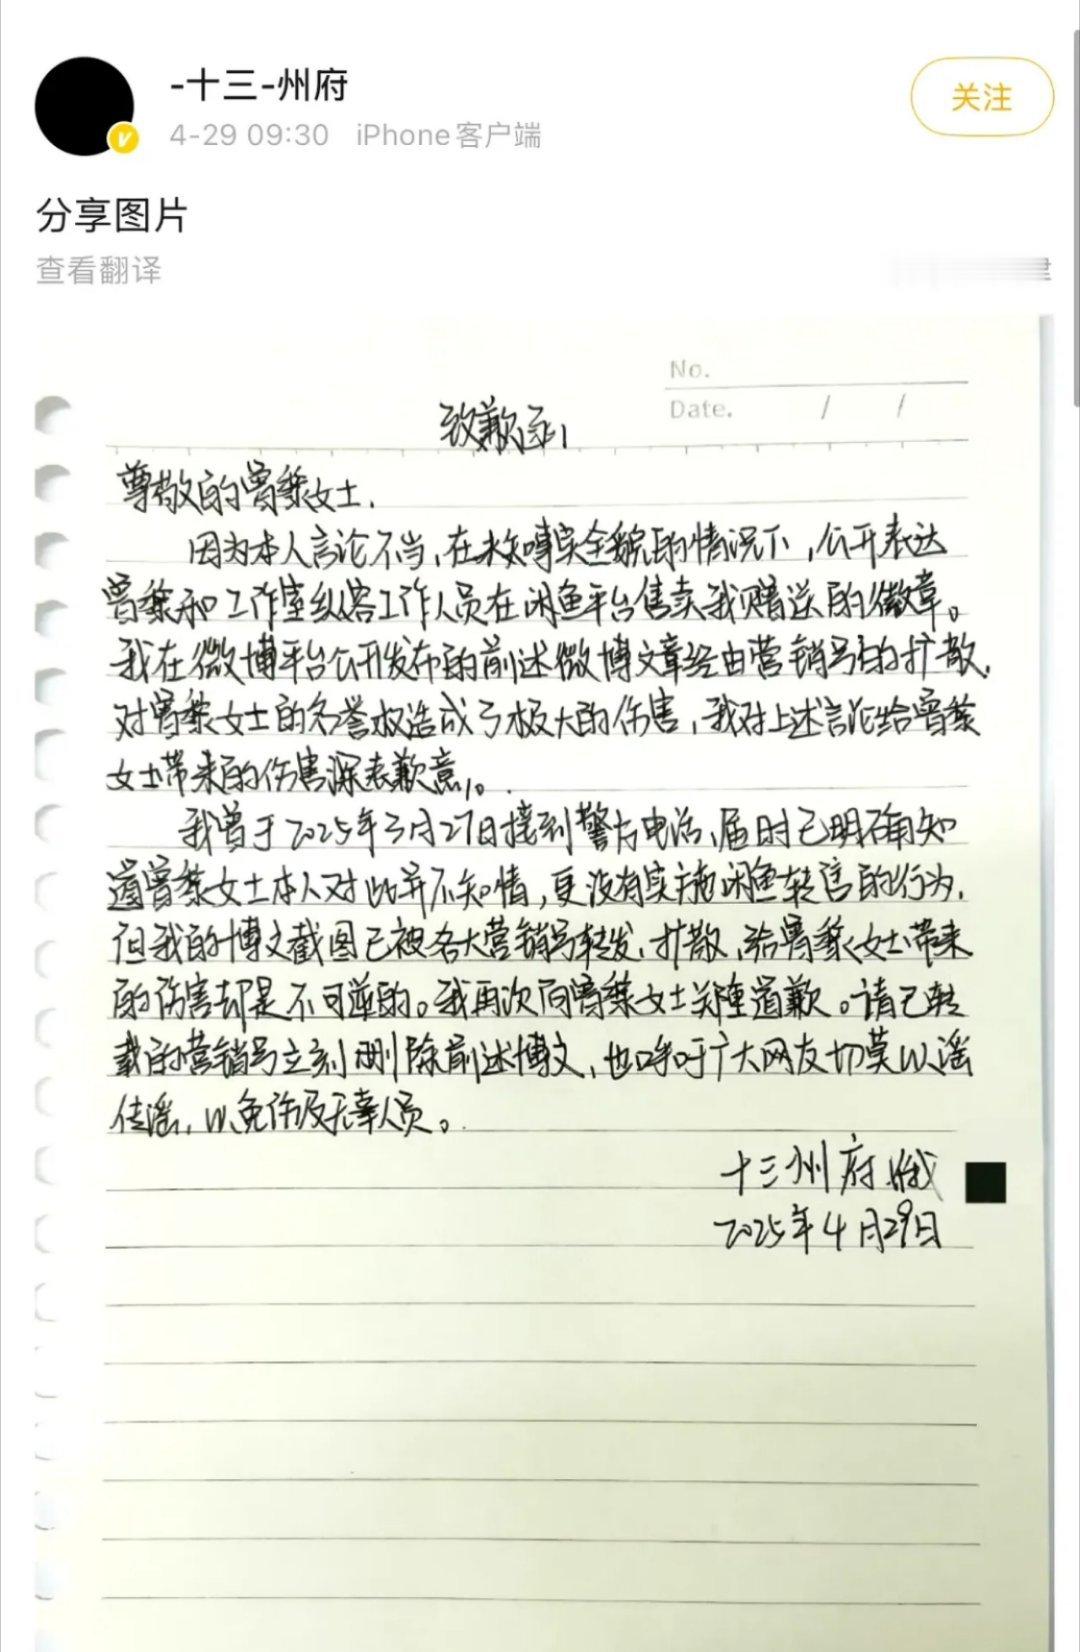 -十三-州府
4-29 09:30 iPhone客户端
关注
分享图片
查看翻译
No.
Date. / /
致歉函
尊敬的曾黎女士.
因为本人言论不当,在未知事实全貌的情况下,公开表达
曾黎和工作室纵容工作人员在闲鱼平台售卖我赠送的徽章。
我在微博平台公开发布的前述微博文章经由营销号的扩散,
对曾黎女士的名誉权造成了极大的伤害,我对上述言论给曾黎
女士带来的伤害深表歉意。
我曾于2025年3月27日接到警方电话,届时已明确知
道曾黎女士本人对此并不知情,更没有实施闲鱼转售的行为,
但我的博文截图已被各大营销号转发,扩散,给曾黎女士带来
的伤害却是不可逆的。我再次向曾黎女士郑重道歉。请已转
载的营销号立刻删除前述博文,也呼吁广大网友切莫以谣
传谣,以免伤及无辜人员。
十三州府
2025年4月29日